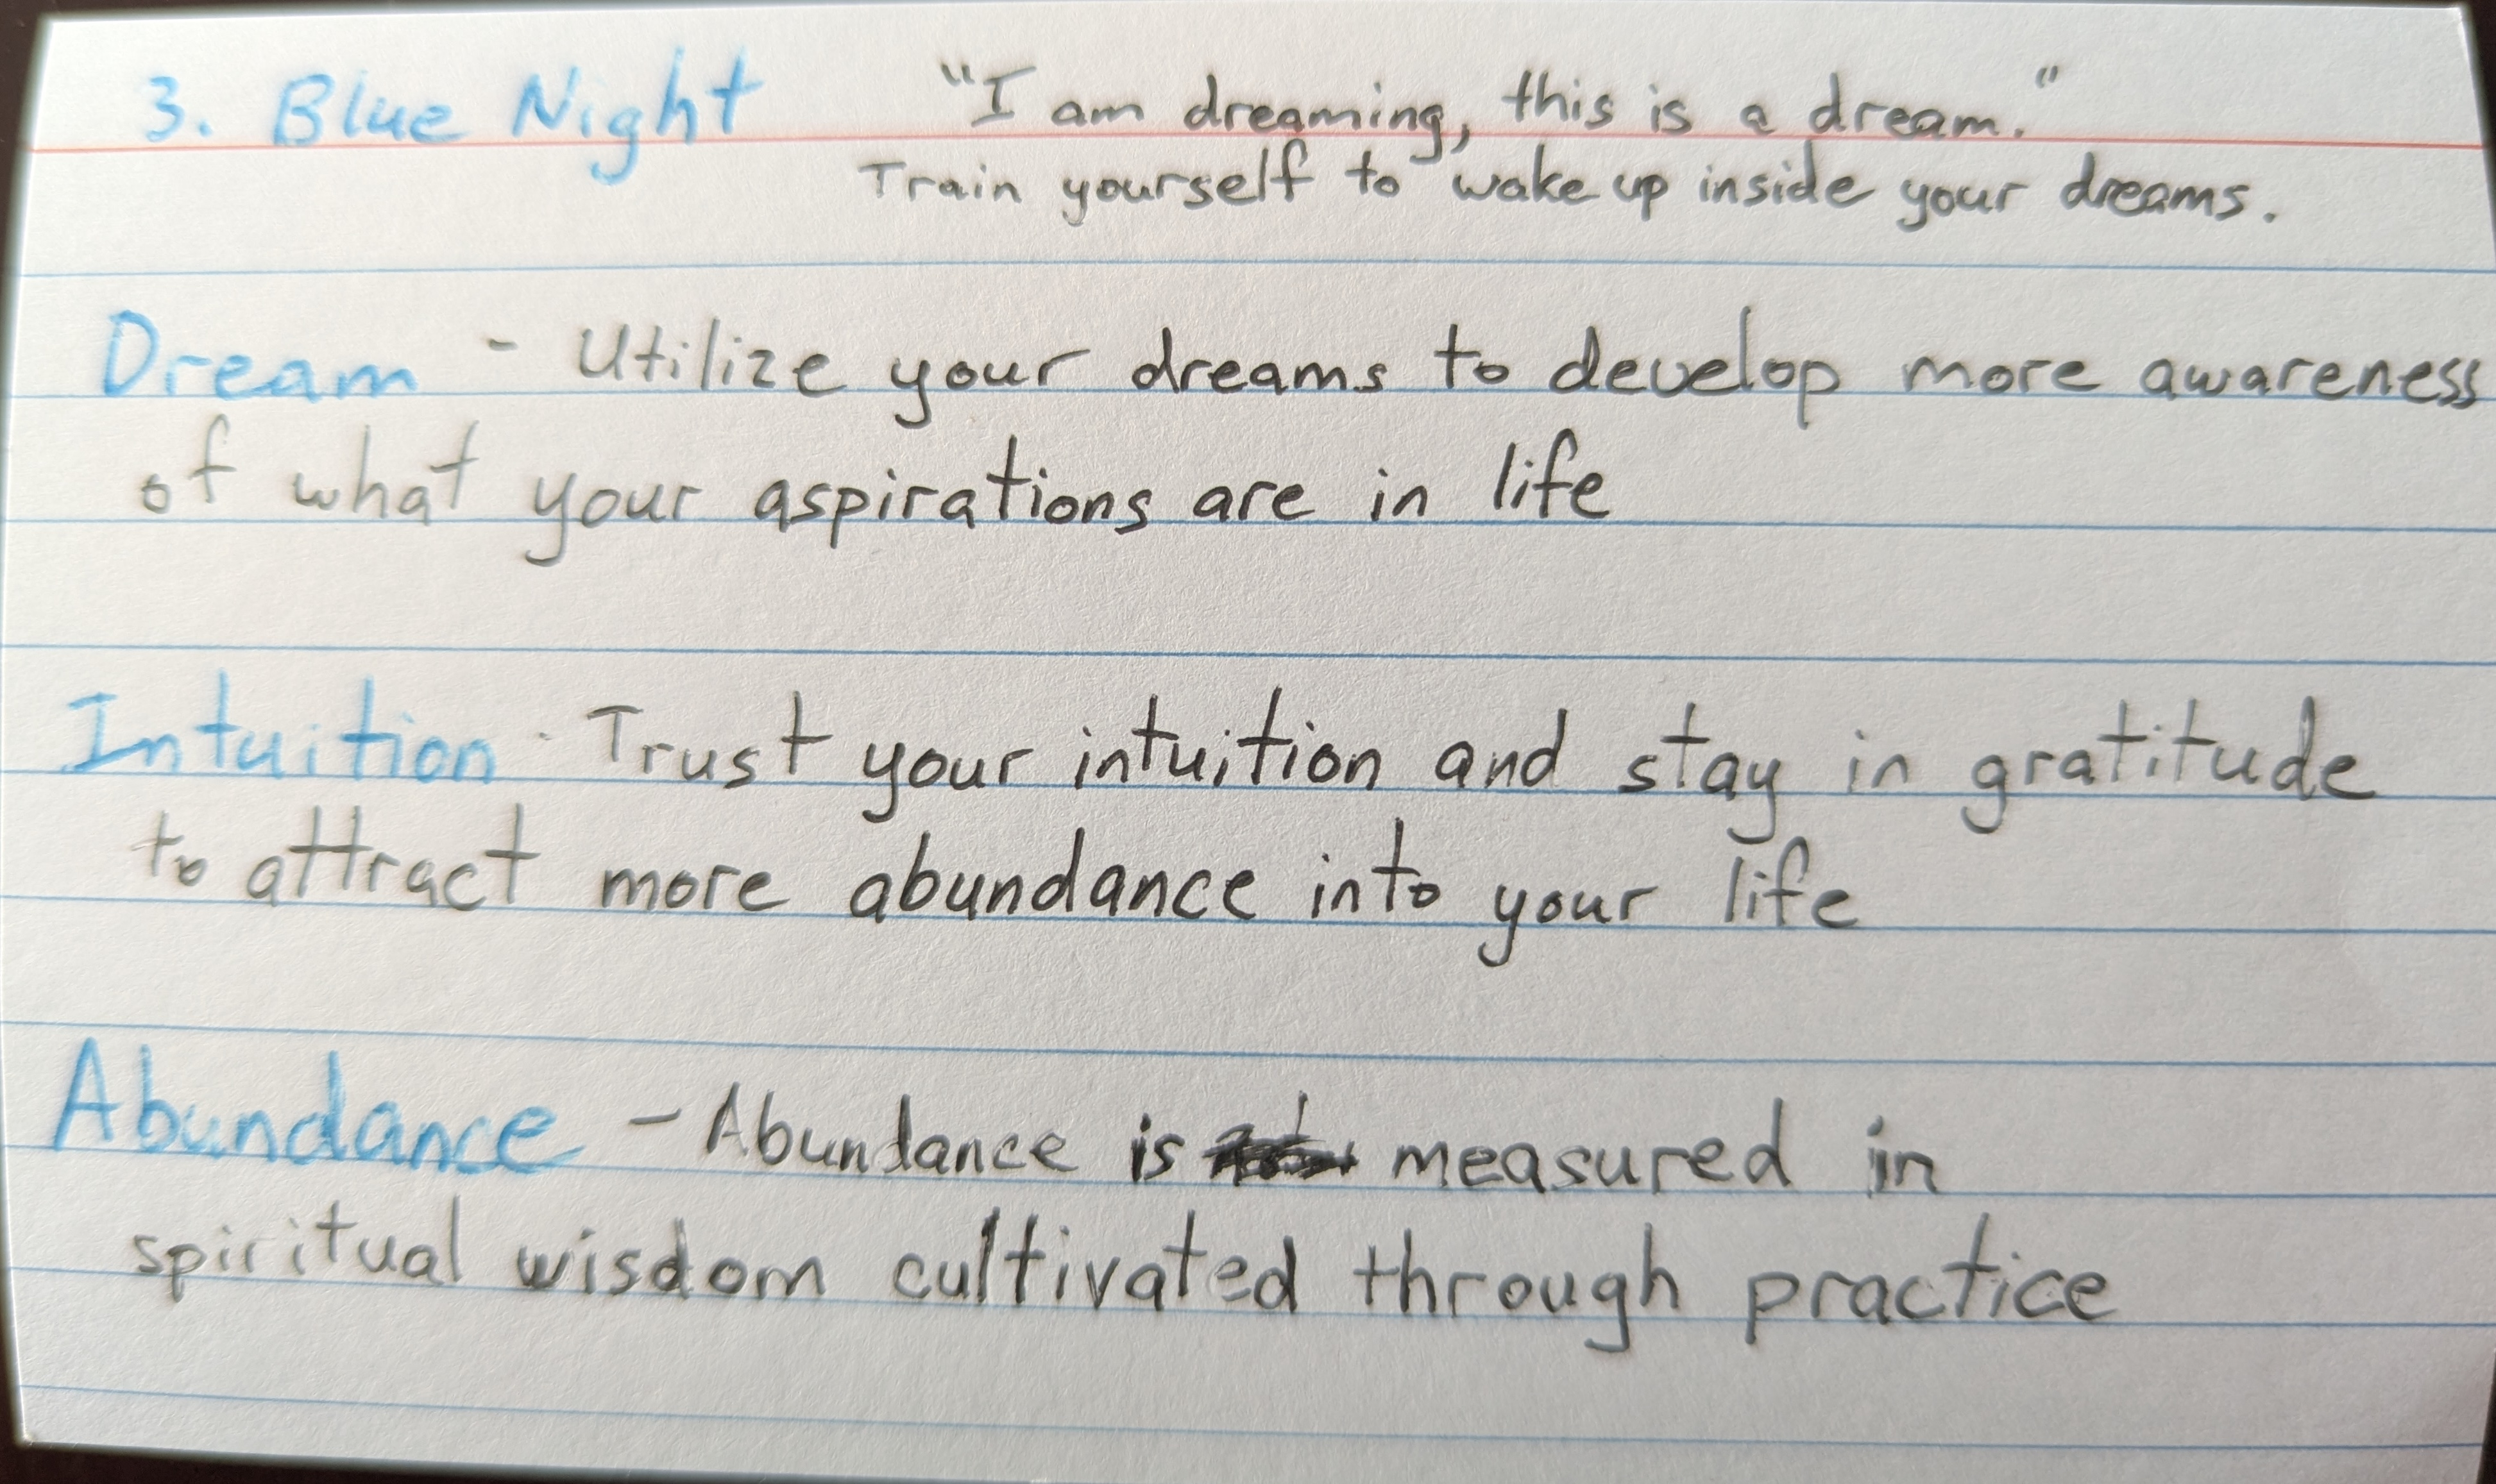 3. Blue Night "I am dreaming, this is a dream."
Train yourself to wake up inside your dreams.
Dream - Utilize your dreams to develop more awareness
of what your aspirations are in life
Intuition - Trust your intuition and stay in gratitude
to attract more abundance into your life
Abundance - Abundance is measured in
spiritual wisdom cultivated through practice